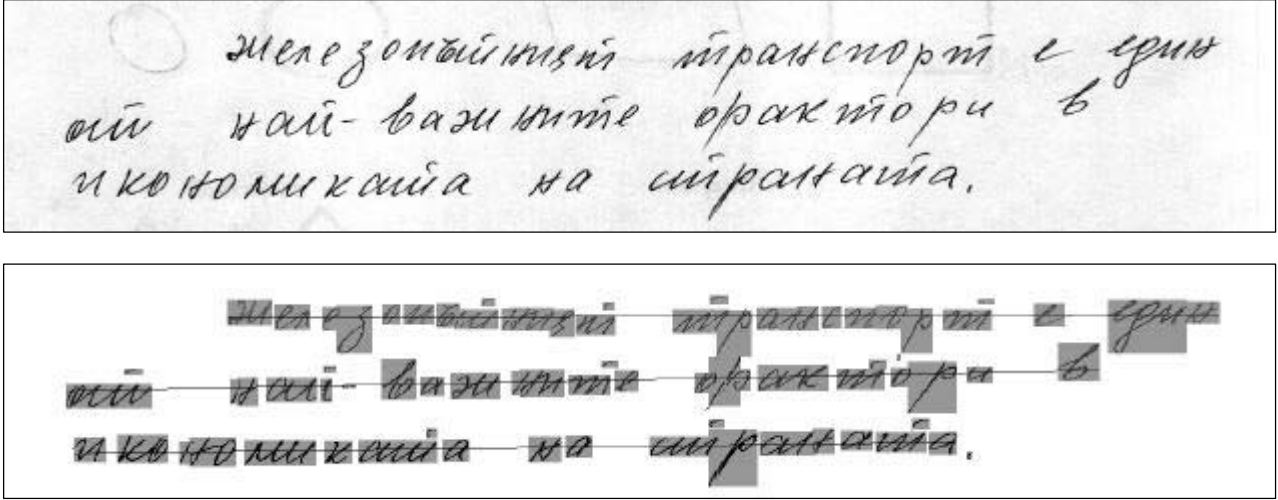 Железопътният транспорт е един
от най-важните фактори в
икономиката на страната.
Железопътният транспорт е един
от най-важните фактори в
икономиката на страната.